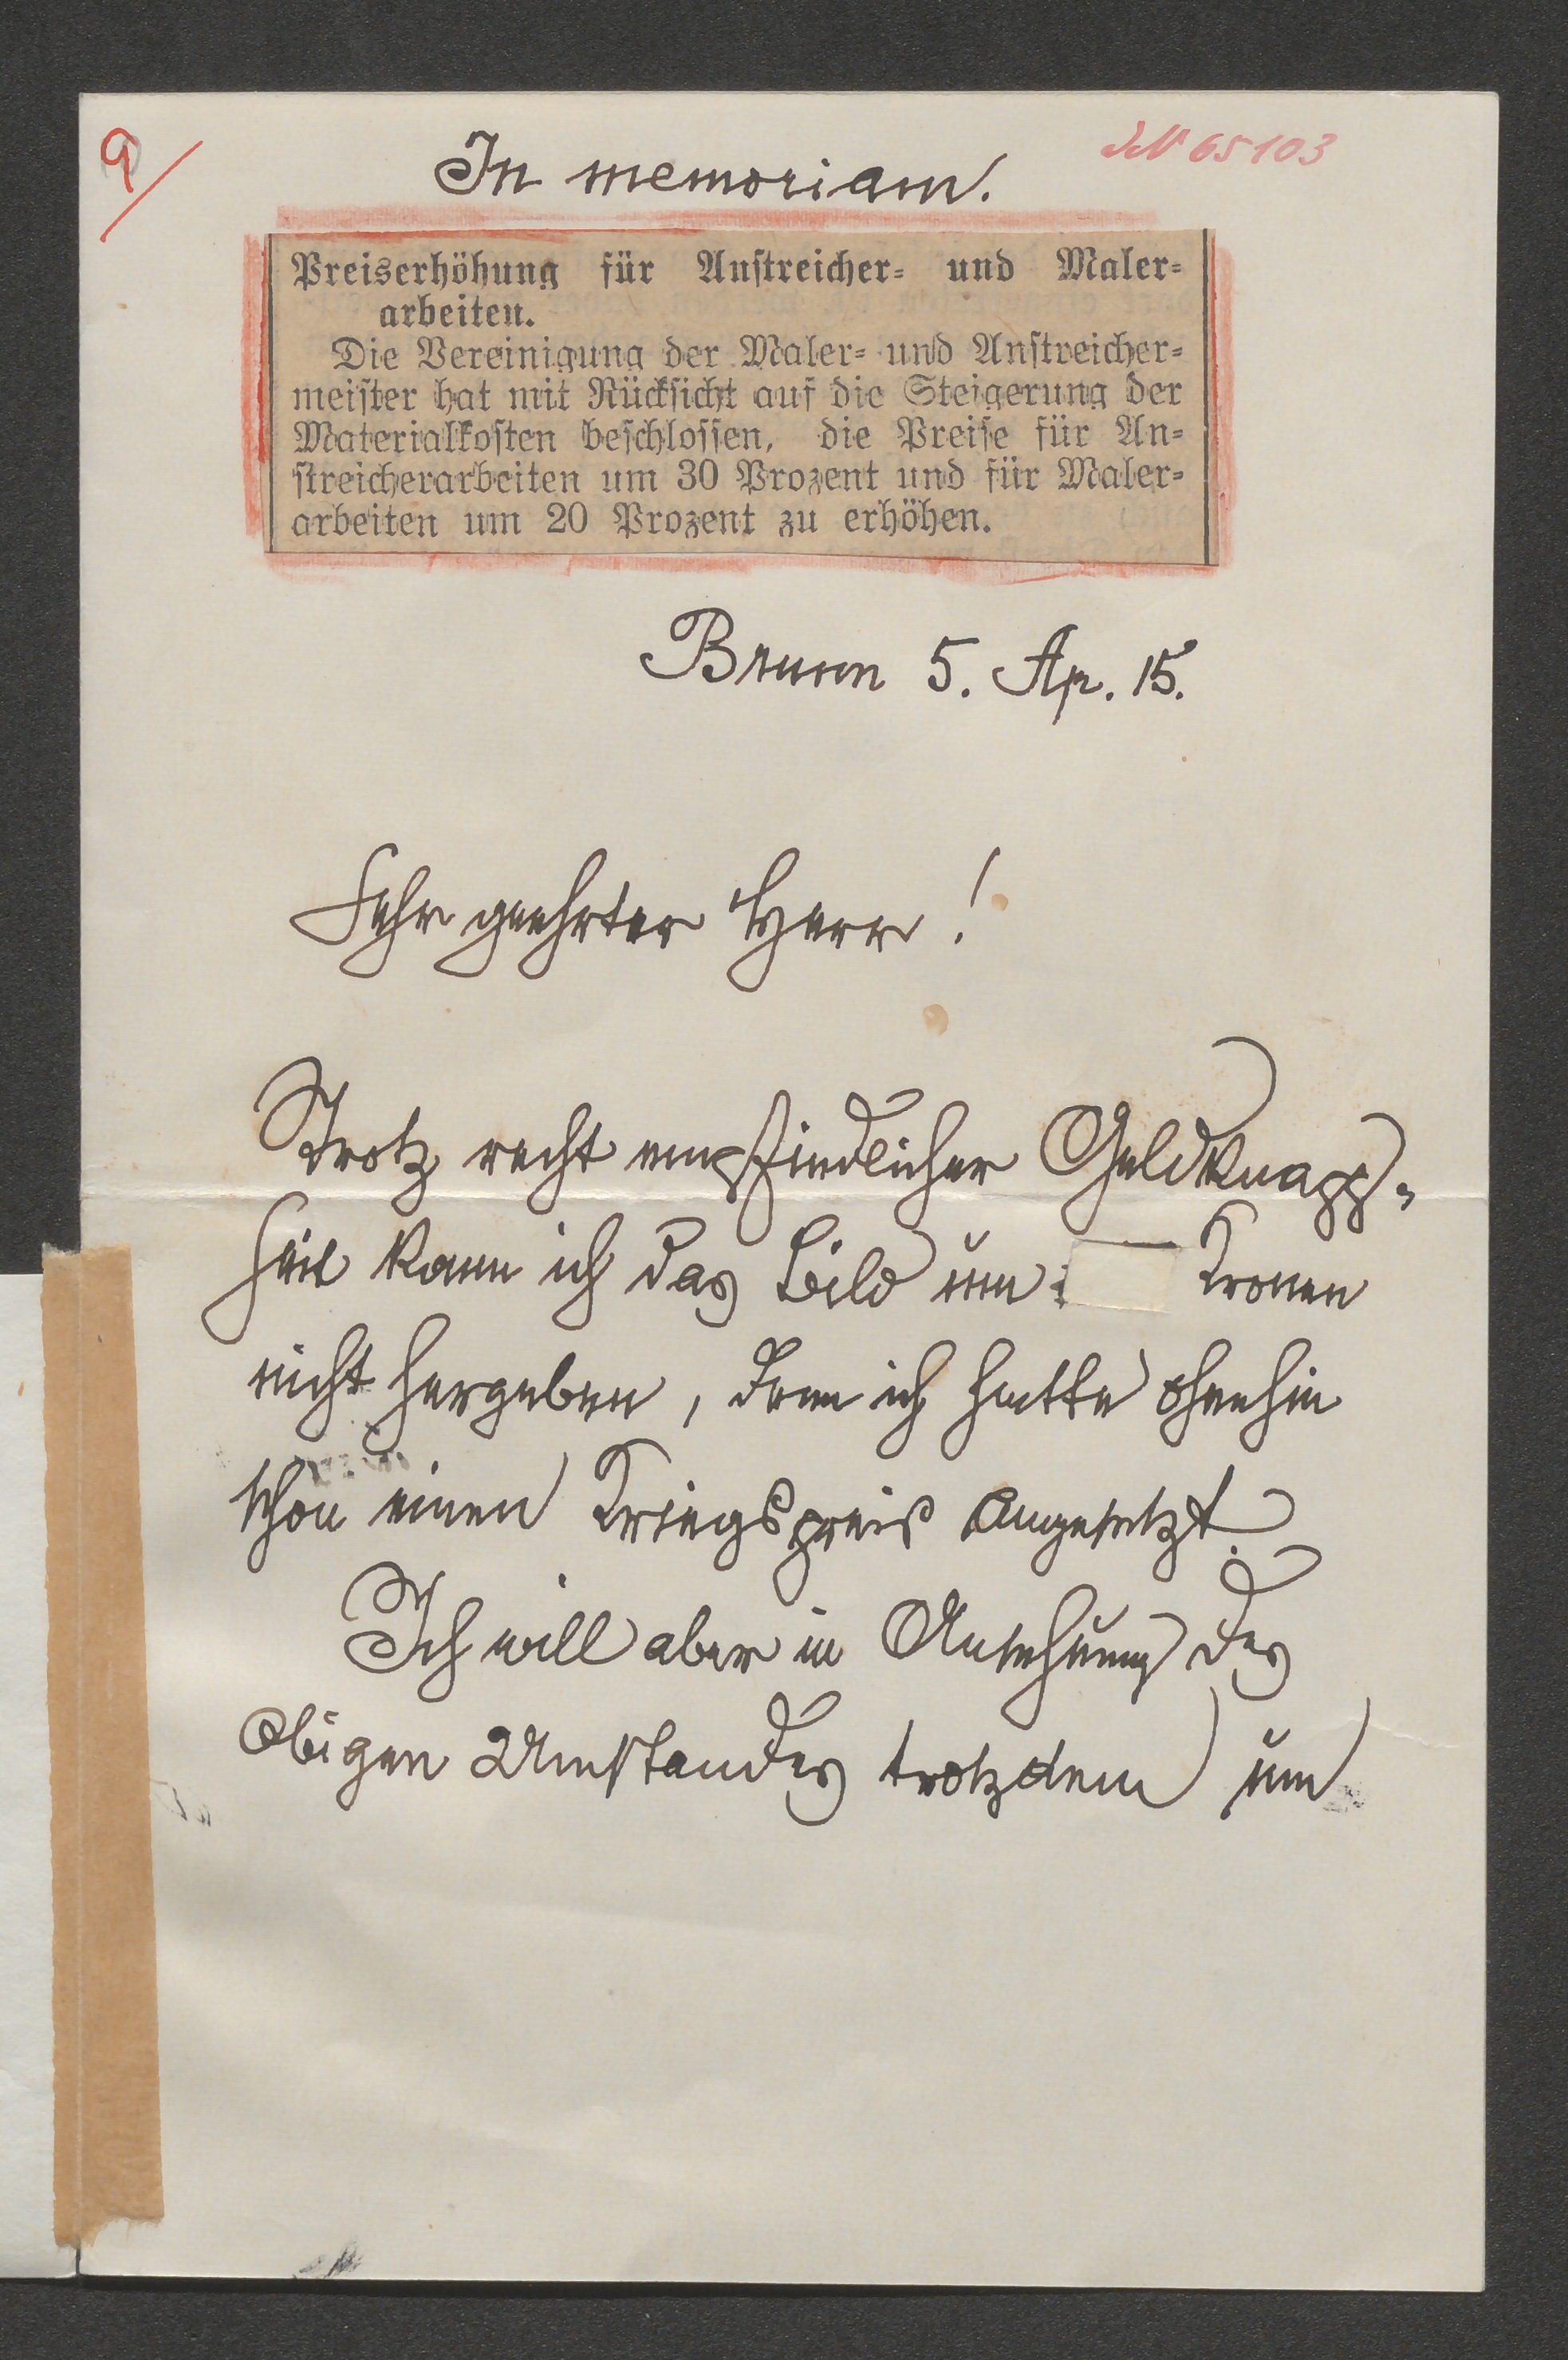 9/
In memoriam.
JN 65103
Preiserhöhung für Anstreicher- und Maler-
arbeiten.
Die Vereinigung der Maler- und Anstreicher-
meister hat mit Rücksicht auf die Steigerung der
Materialkosten beschlossen, die Preise für An-
streicherarbeiten um 30 Prozent und für Maler-
arbeiten um 20 Prozent zu erhöhen.
Brunn 5. Ap. 15.
Sehr geehrter Herr!
Trotz recht empfindlicher Geldknapp-
heit kann ich das Bild um Kronen
nicht hergeben, denn ich hatte ohnehin
schon einen Kriegspreis angesetzt.
Ich will aber in Ansehung des
obigen Umstandes trotzdem um